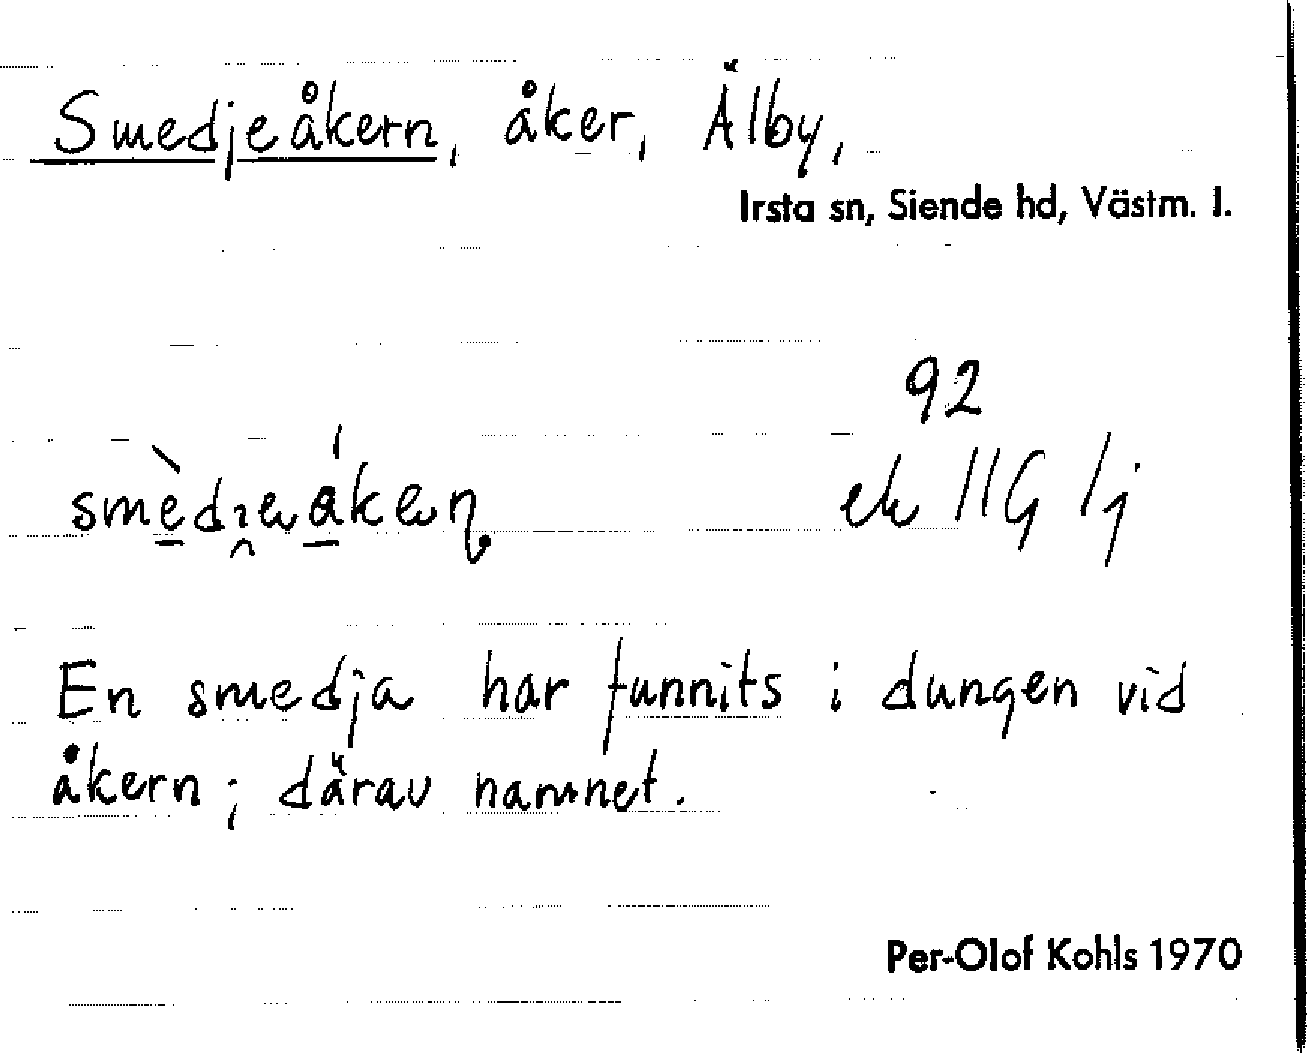 Smedjeåkern, åker, Älby,
Irsta sn, Siende hd, Västm. l.
92
ek 11G 1j
En smedja har funnits i dungen vid
åkern; därav namnet.
Per-Olof Kohls 1970